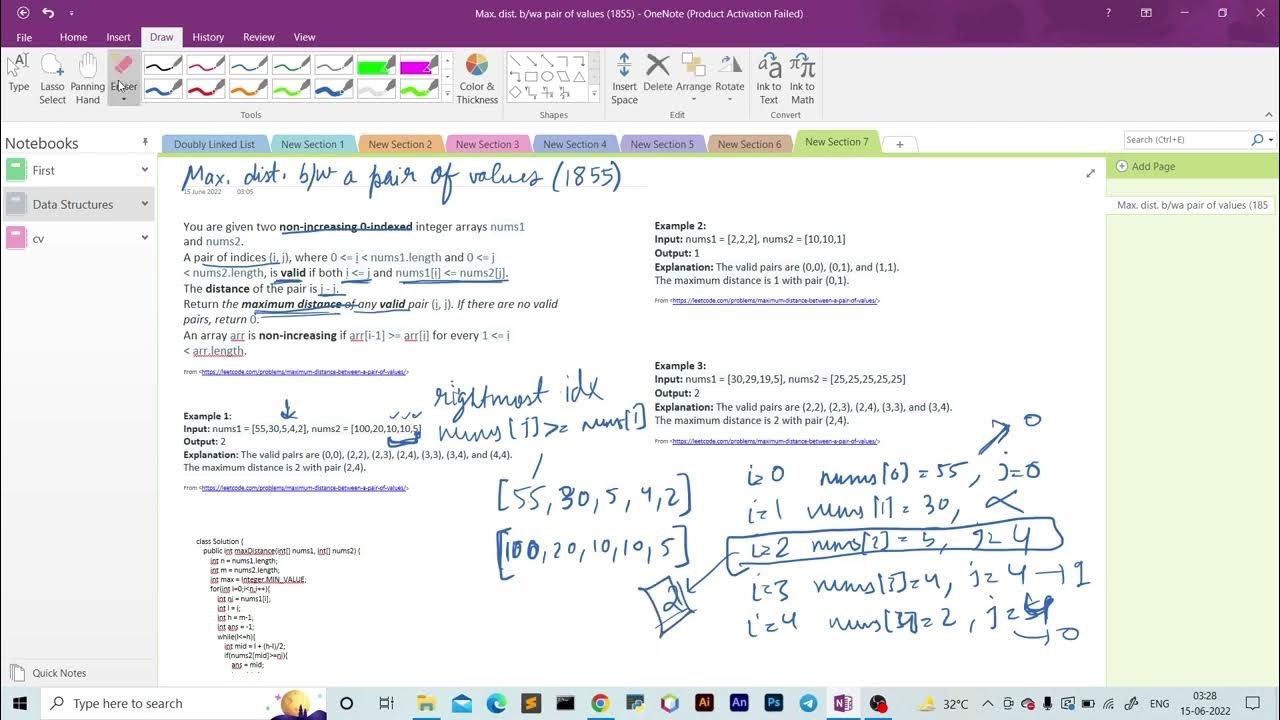 Max. dist. b/w a pair of values (1855) - OneNote (Product Activation Failed)
File Home Insert Draw History Review View
Type
Lasso Select
Panning Hand
Eraser
Color & Thickness
Insert Space
Delete
Arrange
Rotate
Ink to Text
Ink to Math
Tools
Shapes
Edit
Convert
Notebooks
First
Data Structures
cv
Quick Notes
Doubly Linked List New Section 1 New Section 2 New Section 3 New Section 4 New Section 5 New Section 6 New Section 7 +
Search (Ctrl+E)
Add Page
Max. dist. b/wa pair of values (185
Max. dist. b/w a pair of values (1855)
15 June 2022 03:05
You are given two non-increasing 0-indexed integer arrays nums1
and nums2.
A pair of indices (i, j), where 0 <= i < nums1.length and 0 <= j
< nums2.length, is valid if both i <= j and nums1[i] <= nums2[j].
The distance of the pair is j - i.
Return the maximum distance of any valid pair (i, j). If there are no valid
pairs, return 0.
An array arr is non-increasing if arr[i-1] >= arr[i] for every 1 <= i
< arr.length.
From <https://leetcode.com/problems/maximum-distance-between-a-pair-of-values/>
Example 1:
Input: nums1 = [55,30,5,4,2], nums2 = [100,20,10,10,5]
Output: 2
Explanation: The valid pairs are (0,0), (2,2), (2,3), (2,4), (3,3), (3,4), and (4,4).
The maximum distance is 2 with pair (2,4).
From <https://leetcode.com/problems/maximum-distance-between-a-pair-of-values/>
class Solution {
public int maxDistance(int[] nums1, int[] nums2) {
int n = nums1.length;
int m = nums2.length;
int max = Integer.MIN_VALUE;
for(int i=0;i<n;i++){
int nj = nums1[i];
int l = i;
int h = m-1;
int ans = -1;
while(l<=h){
int mid = l + (h-l)/2;
if(nums2[mid]>=nj){
ans = mid;
rightmost idx
nums[j]>= nums[i]
[55, 30, 5, 4, 2]
[100, 20, 10, 10, 5]
Example 2:
Input: nums1 = [2,2,2], nums2 = [10,10,1]
Output: 1
Explanation: The valid pairs are (0,0), (0,1), and (1,1).
The maximum distance is 1 with pair (0,1).
From <https://leetcode.com/problems/maximum-distance-between-a-pair-of-values/>
Example 3:
Input: nums1 = [30,29,19,5], nums2 = [25,25,25,25,25]
Output: 2
Explanation: The valid pairs are (2,2), (2,3), (2,4), (3,3), and (3,4).
The maximum distance is 2 with pair (2,4).
From <https://leetcode.com/problems/maximum-distance-between-a-pair-of-values/>
0
i=0 nums[0] = 55, j=0
i=1 nums[1] = 30,
i=2 nums[2] = 5, j=4
2
i=3 nums[3]=4, j=4 → 1
i=4 nums[4]=2, j=4
→ 0
Type here to search
32°C
ENG
03:28
15-06-2022